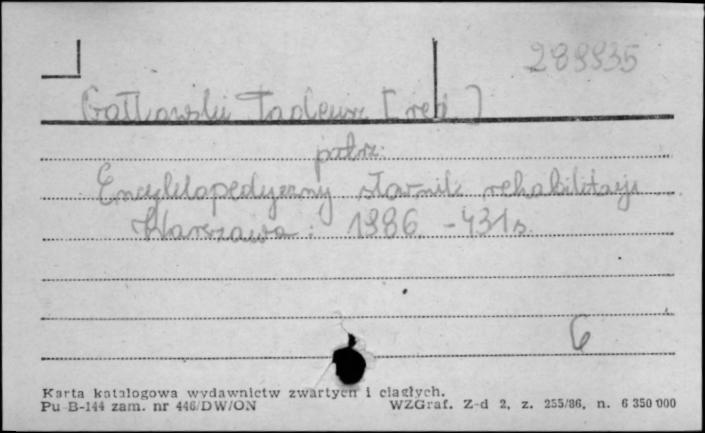 289935
Gałkowski Tadeusz [red.]
patrz:
Encyklopedyczny słownik rehabilitacji
Warszawa: 1986. - 431 s.
6
Karta katalogowa wydawnictw zwartych i ciągłych.
Pu B-144 zam. nr 446/DW/ON WZGraf. Z-d 2, z. 255/86, n. 6 350 000